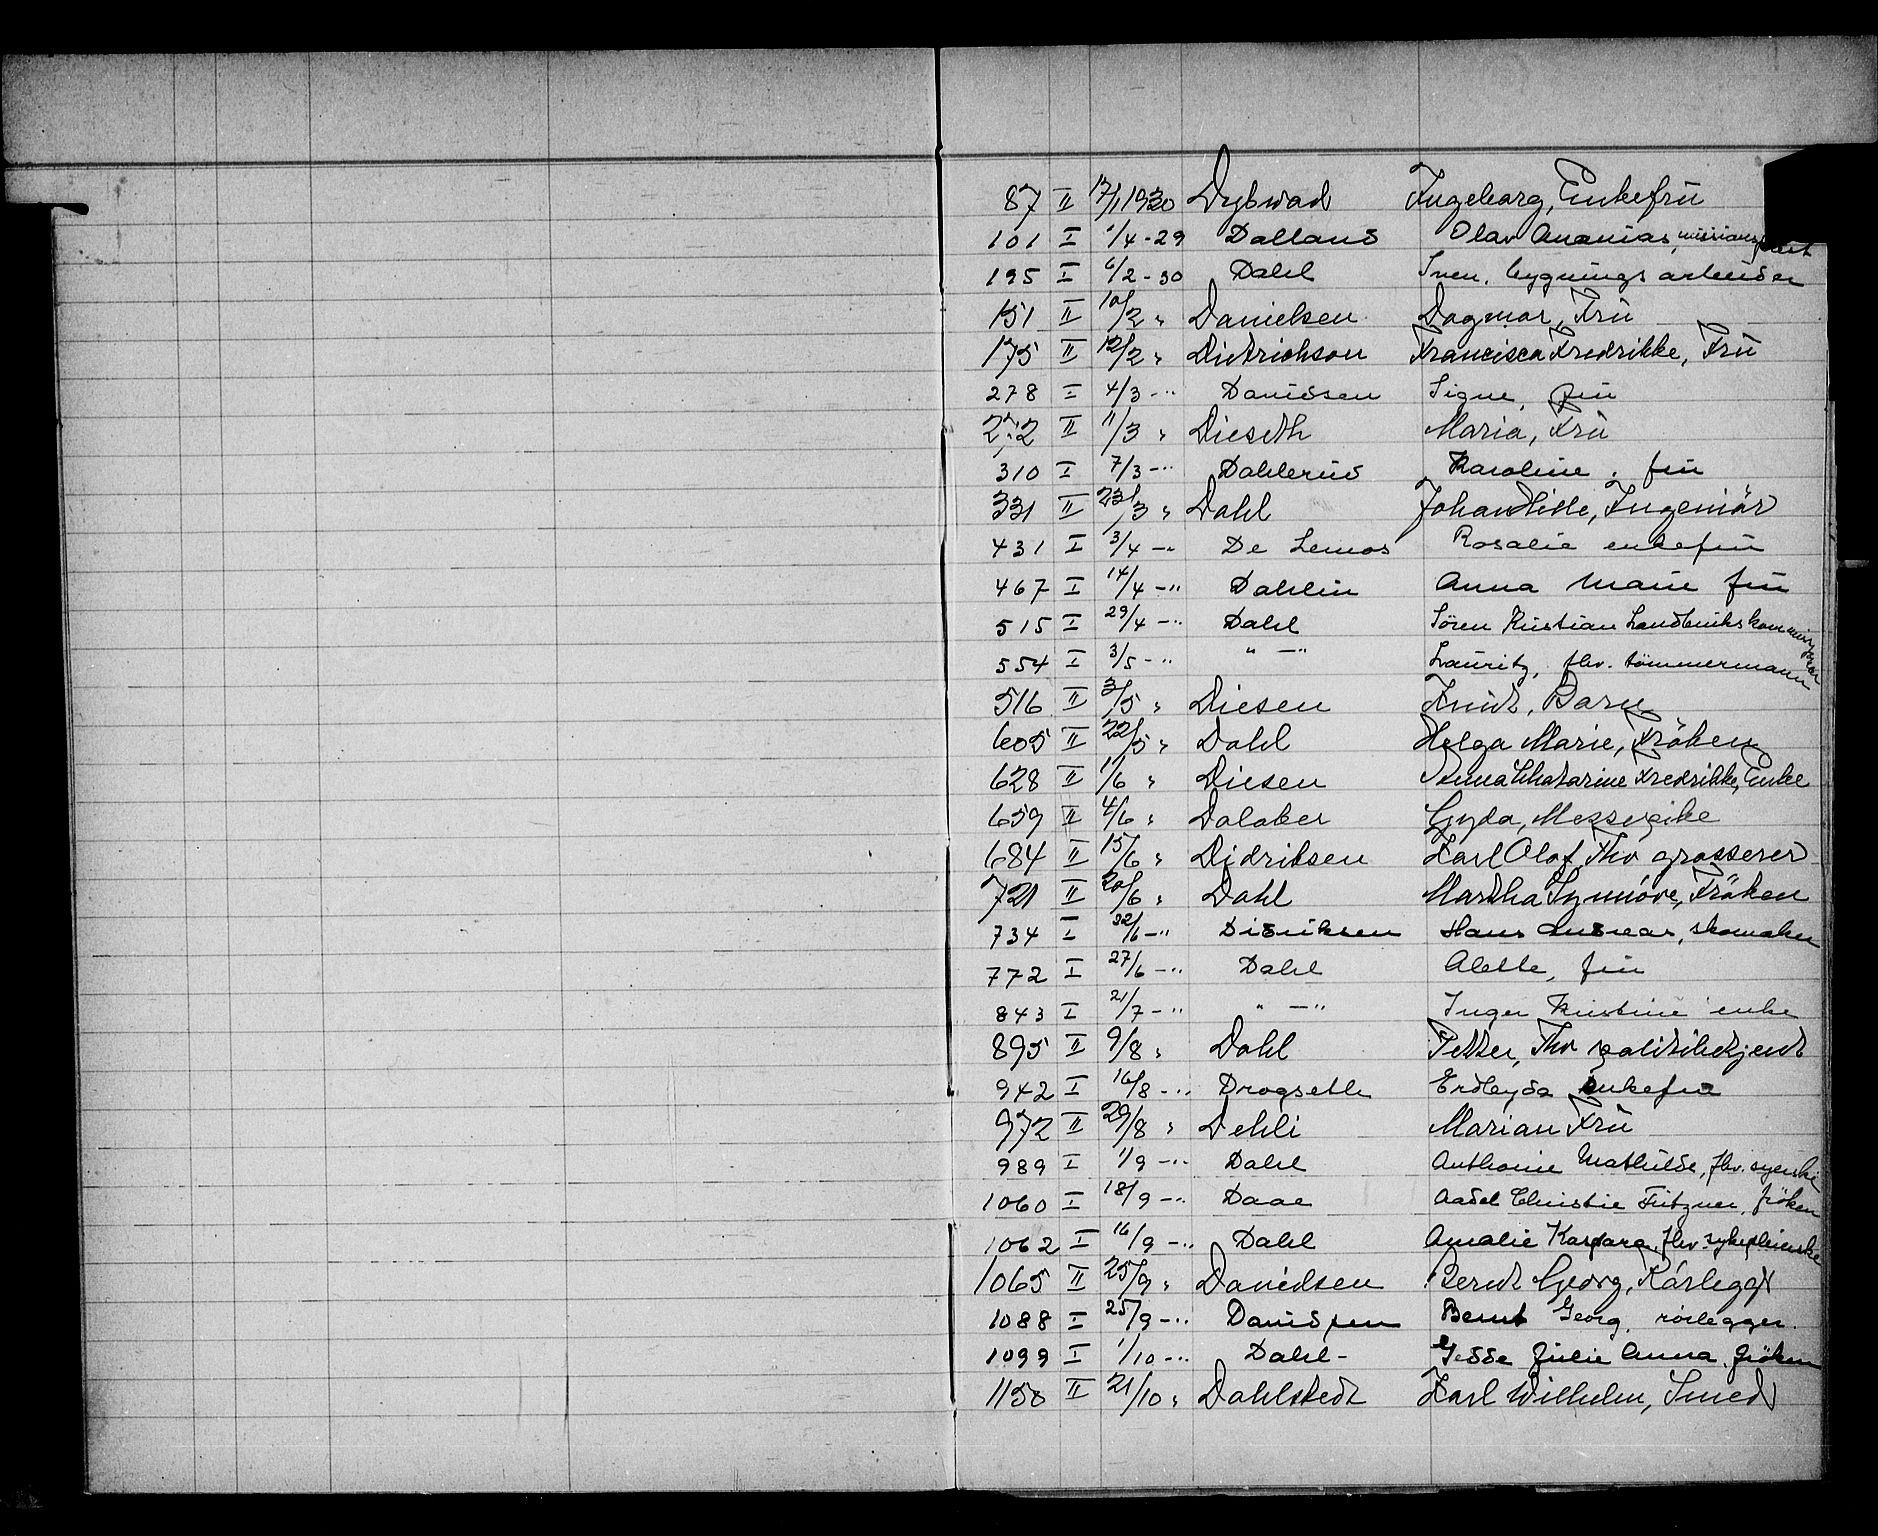 87 II 17/1 1930 Dybwad Ingeborg, Enkefrü
101 I 1/4 - 29 Dalland Olav Ananias, missionsprest
195 I 6/2 - 30 Dahl Sven, bygningsarbeider
151 II 10/2 " Danielsen Dagmar, Frü
175 II 12/2 " Dietrichson Francisca Fredrikke, Frü
278 I 4/3 - " Davidsen Signe, frü
272 II 11/3 " Dieseth Maria, Frü
310 I 7/3 - " Dahlerud Karoline, frü
331 II 23/3 " Dahl Johan Hille, Ingeniör
431 I 3/4 - " De Lemos Rosalie enkefrü
467 I 14/4 - " Dahlin Anna Marie frü
515 I 29/4 - " Dahl Sören Kristian Landbrukskommissær
554 I 3/5 - " " - " Lauritz, fhv. tömmermann
516 II 3/5 " Diesen Knüt, Barn
605 II 22/5 " Dahl Helga Marie, Fröken
628 II 1/6 " Diesen Anna Chatarine Fredrikke, Enke
659 II 4/6 " Dalaker Gyda, Messepike
684 II 15/6 " Didriksen Karl Olaf, Fhv grosserer
721 II 20/6 " Dahl Martha Synnöve, Fröken
734 I 22/6 - " Didriksen Hans Andreas, skomaker
772 I 27/6 - " Dahl Alette, frü
843 I 21/7 - " " - " Inger Kristine enke
895 II 9/8 " Dahl Petter, Fhv politibetjent
942 I 16/8 - " Drogseth enkefru
972 II 29/8 " Dehli Marian Frü
989 I 1/9 - " Dahl Anthonie Mathilde, fhv. syerske
1060 I 18/9 - " Daae Aadel Christie Fritzner, fröken
1062 I 16/9 - " Dahl Amalie Kaspara, fhv. sykepleierske
1065 II 25/9 " Davidsen Bernt Georg, Rörleggr
1088 I 25/9 - " Davidsen Bernt Georg, rörlegger.
1099 I 1/10 - " Dahl - Gidde Julie Anna, fröken
1150 II 21/10 " Dahlstedt Karl Wilhelm, Smed